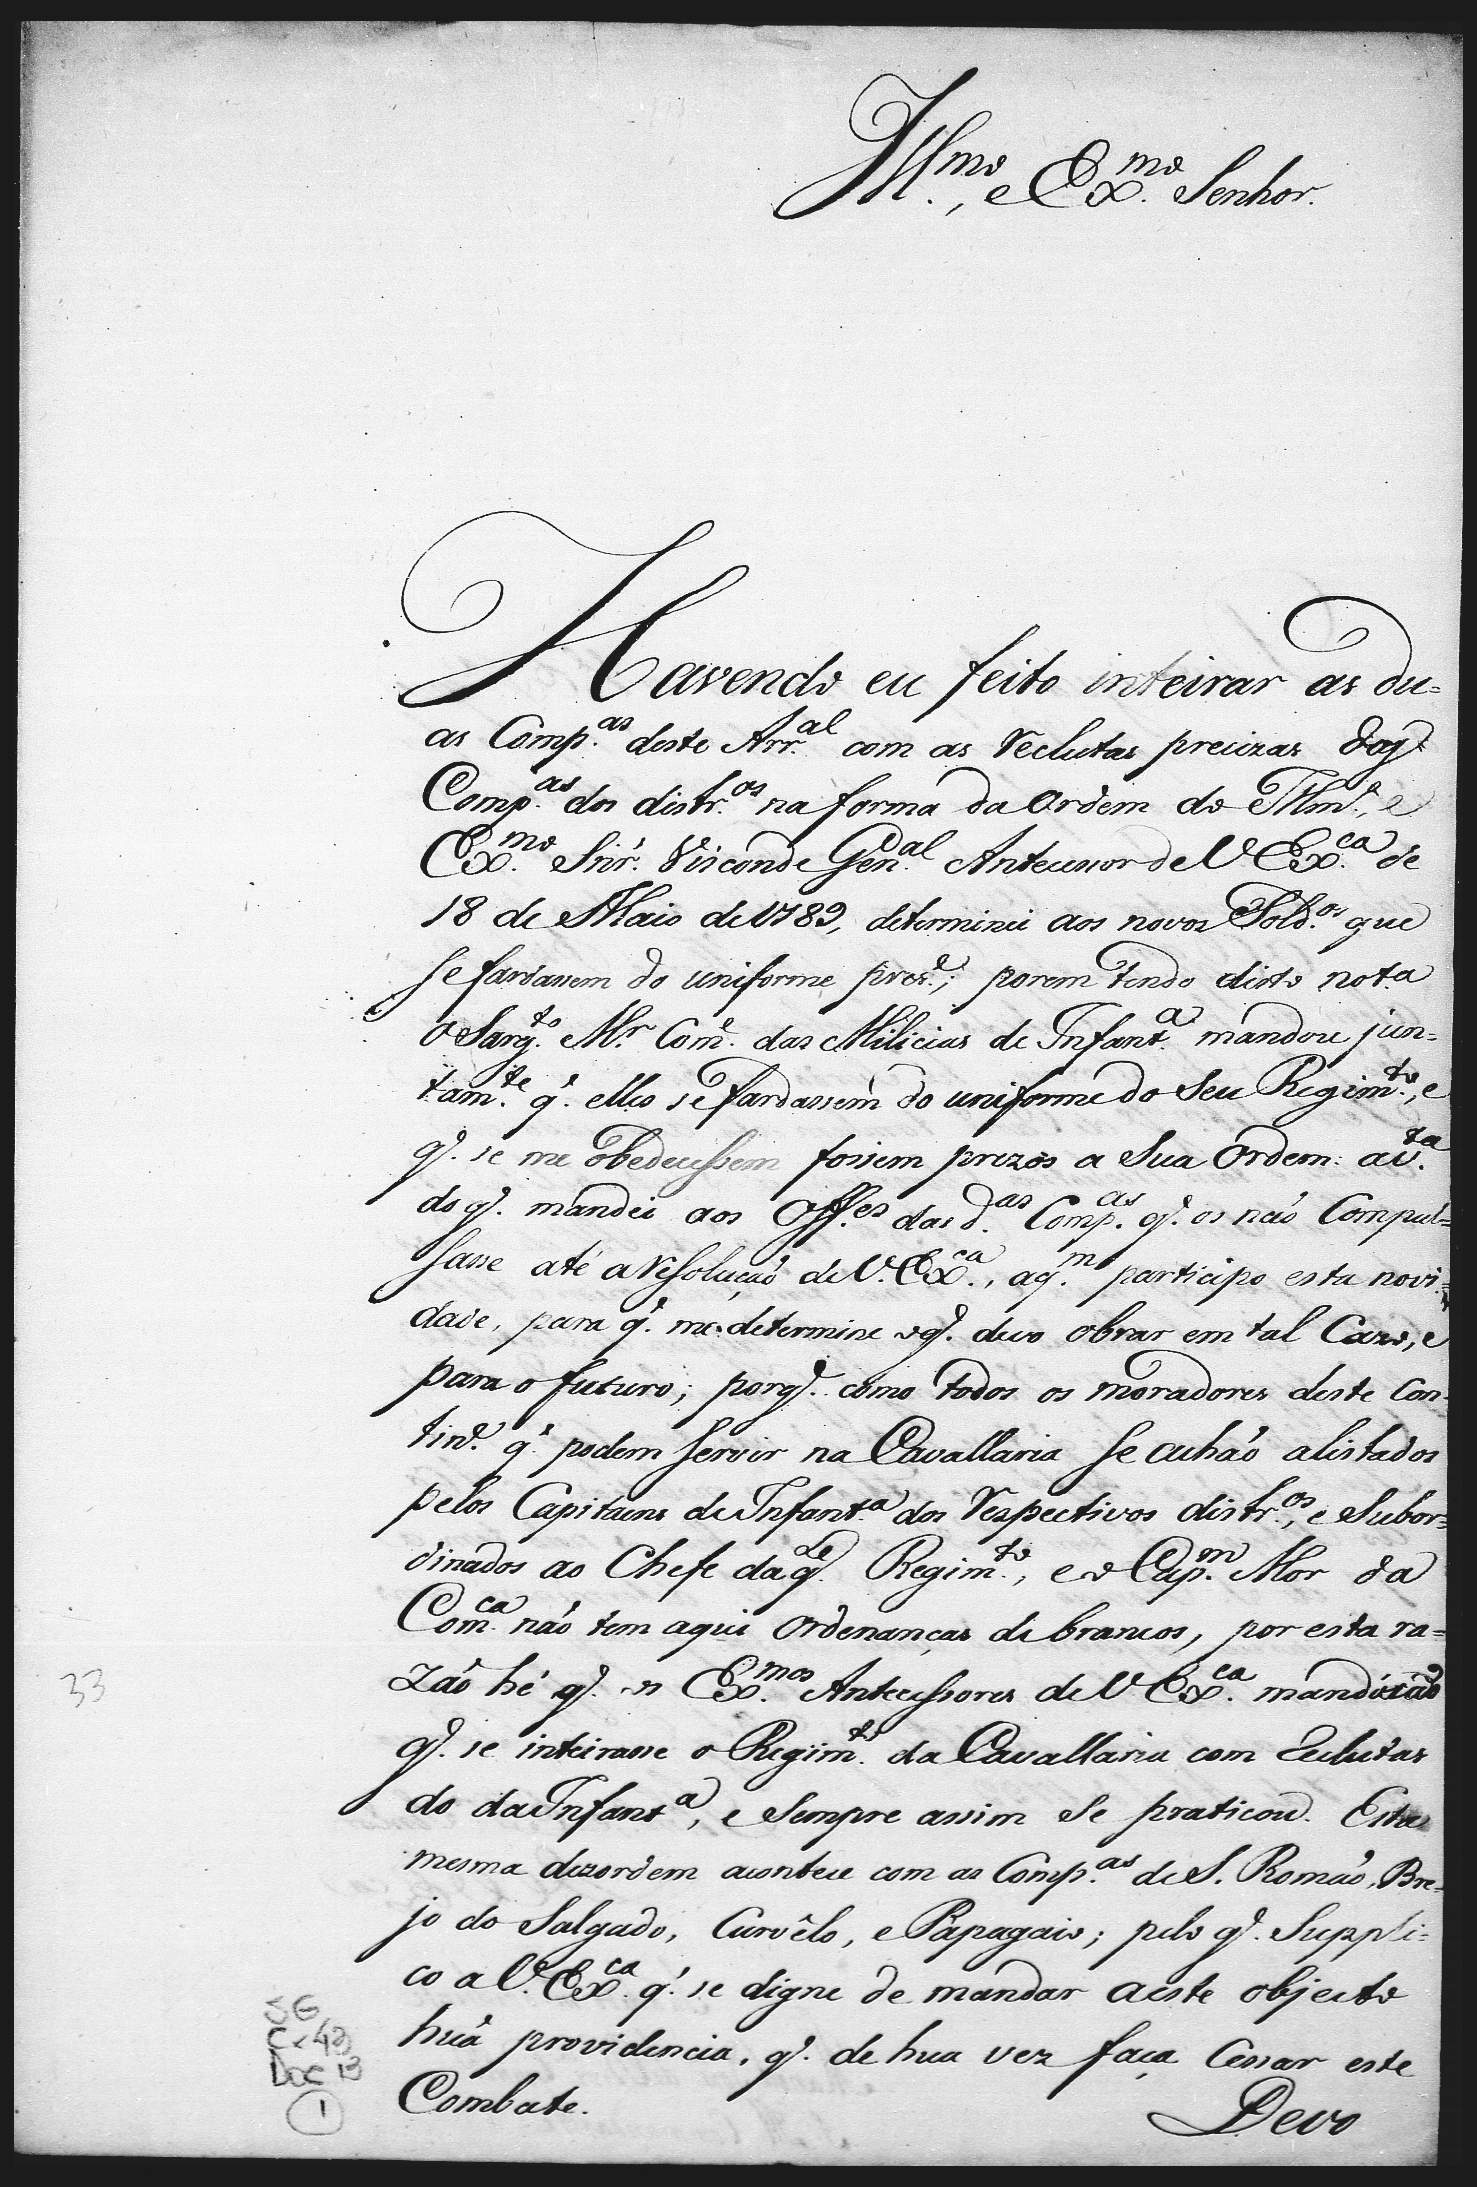 Ill.mo, e Ex.mo Senhor.
Havendo eu feito inteirar as du=
as Comp.as deste Arr.al com as reclutas precizas das
Comp.as dos distr.os na forma da Ordem do Illm.o, e
Ex.mo Snr. Visconde Gen.al Antecessor de V Ex.ca de
18 de Maio de 1789, determinei aos novos Sold.os que
se fardassem do uniforme prez.e; porem tendo disto nota
o Sarg.to M.r Com.e das Milicias de Infant.a mandou jun=
tam.te q. elles se fardassem do uniforme do seu Regim.to, e
q. se me obedecessem fossem prezos a Sua Ordem: a v.ta
do q. mandei aos Off.es das d.as Comp.as q. os não Compul=
sasse até a resolução de V. Ex.ca, a q.m participo esta novi=
dade, para q. me determine o q. devo obrar em tal Cazo, e
para o futuro; porq. como todos os moradores deste Con=
tin.e q. podem servir na Cavallaria se achão alistados
pelos Capitaens de Infant.a dos respectivos distr.os, e Subor=
dinados ao Chefe daq.le Regim.to, e o Cap.m Mor da
Com.ca não tem aqui Ordenanças de brancos, por esta ra=
zão hé q. os Ex.mos Antecessores de V Ex.ca mandárão
q. se inteirasse o Regim.to da Cavallaria com reclutas
do da Infant.a, e sempre assim se praticou. Esta
mesma dezordem acontece com as Comp.as de S. Romão, Bre=
jo do Salgado, Curvêlo, e Papagaio; pelo q. Suppli=
co a V. Ex.ca q. se digne de mandar a este objecto
huã providencia, q. de hua vez faça Cessar este
Combate.
Devo
33
SG
Cx 42
Doc 13
1